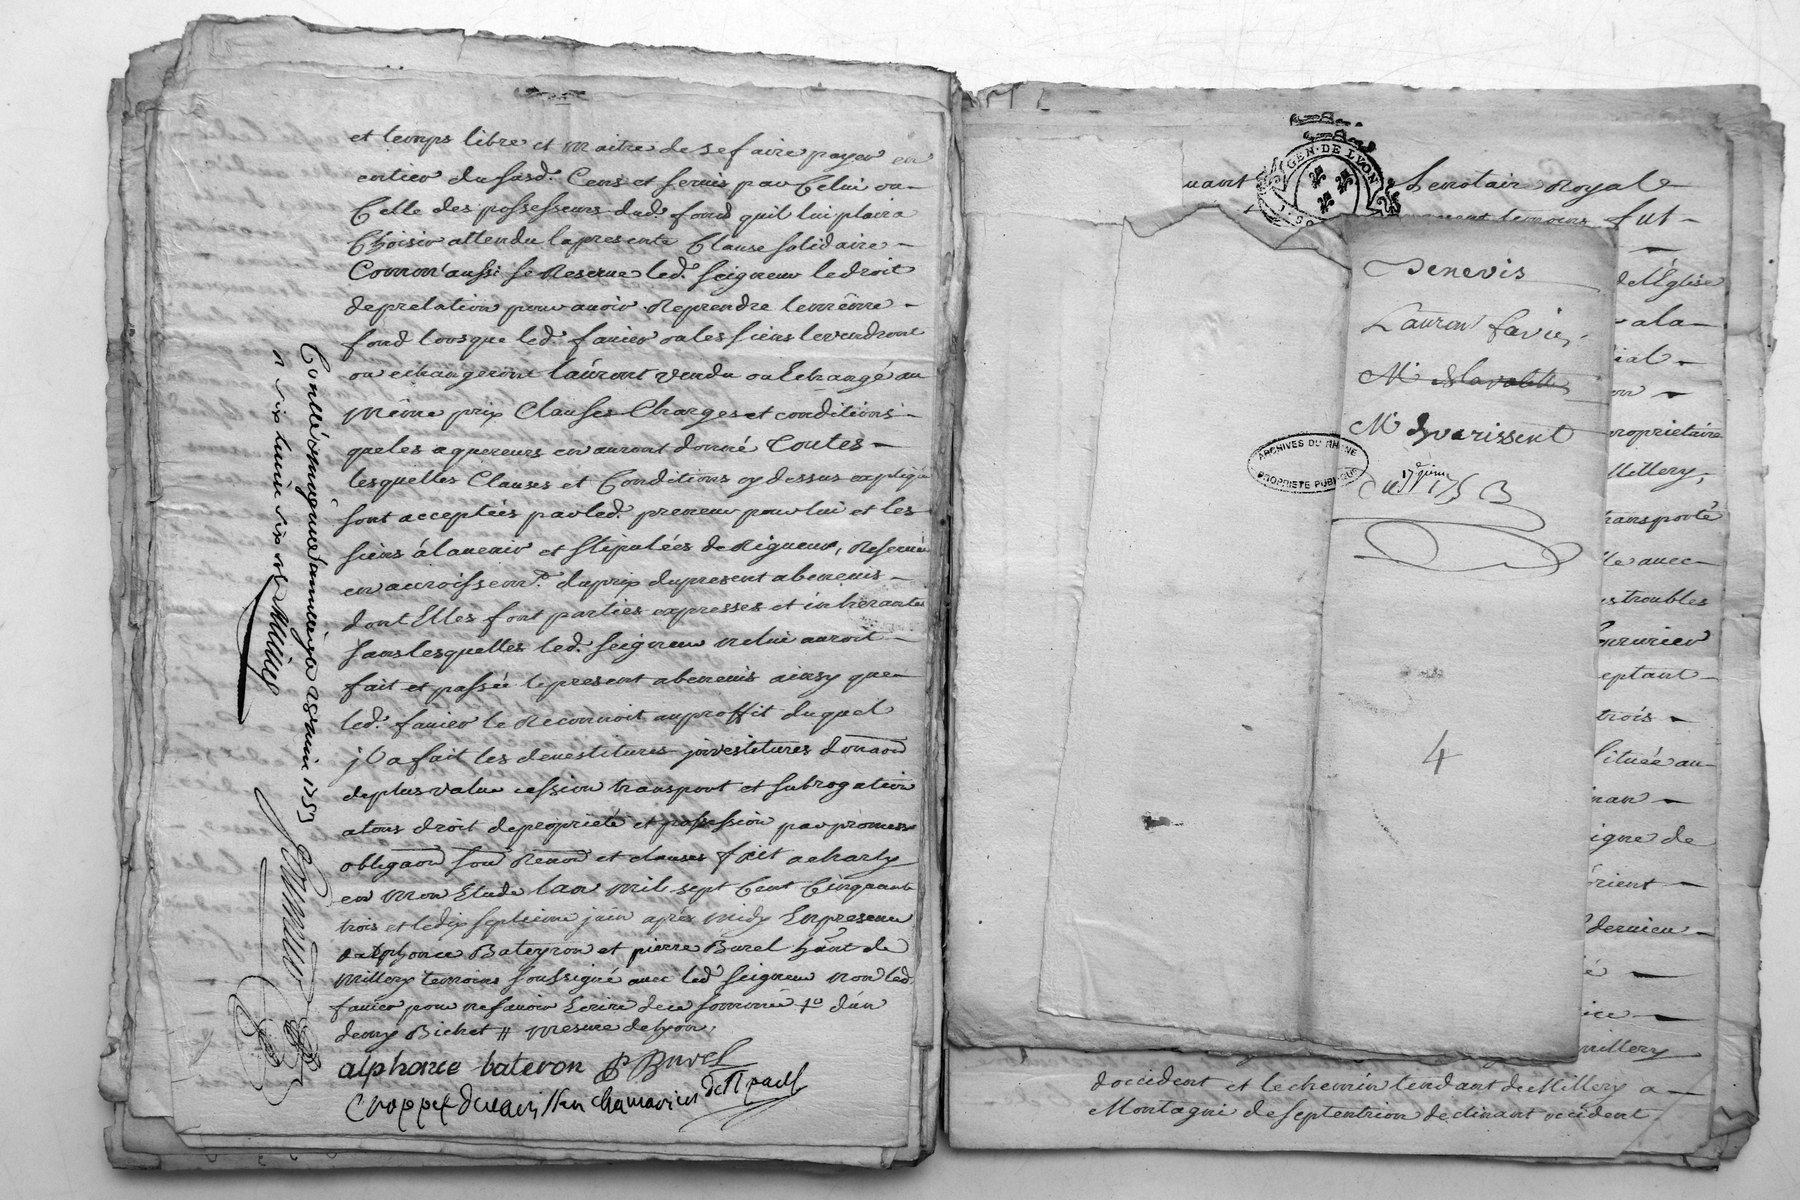 et temps libre et maitre de se faire payer en
entier du susd. Cens et servis par Celui ou
Celle des possesseurs dud. fond quil lui plaira
Choisir attendu la presente Clause solidaire
Comm'aussi se Reserve led. seigneur le droit
de prelation pour avoir Reprendre le même
fond lorsque led. favier ou les siens le vendront
ou echangeront l'auront vendu ou Echangé au
même prix Clauses Charges et conditions
que les aquereurs en auront donné Toutes
lesquelles Clauses et Conditions cy dessus expliqué
sont acceptées par led. preneur pour lui et les
siens à l'avenir et stipulées de Rigueur, Reservé
en accroissem.t du prix du present abenevis
dont Elles font parties expresses et inherantes
sans lesquelles led. seigneur ne lui auroit
fait et passée le present abenevis ainsy que
led. favier le Reconnoit au proffit duquel
jl a fait les devestitures jnvestitures donaon
de plus value cession transport et subrogation
a tous droit de propriété et possession par promesse
obligaon sou Renon et clauses fait a charly
en mon Etude l'an mil sept Cent Cinquante
trois et le dix septieme juin après midy En presence
d'alphonce Bateyron et pierre Burel hant de
Millery temoins soussigné avec led seigneur non led.
favier pour ne savoir Ecrire de ce sommé
demy Bichet # mesure de lyon.
alphonce bateron P Burel
Contrôlé 1753
GEN·DE LYON
notair Royal
fut
de l'Eglise
a la
proprietaire
Millery,
transporté
le avec
troubles
eptant
trois
située au
igne de
orient
dernier
millery
d'occident et le chemin tendant de Millery a
Montagni de septentrion declinant occident
Benevis
Laurent favier
Mr
Mr
ARCHIVES DU RHÔNE
PROPRIETE PUBLIQUE
Du 17 juin 1753
4